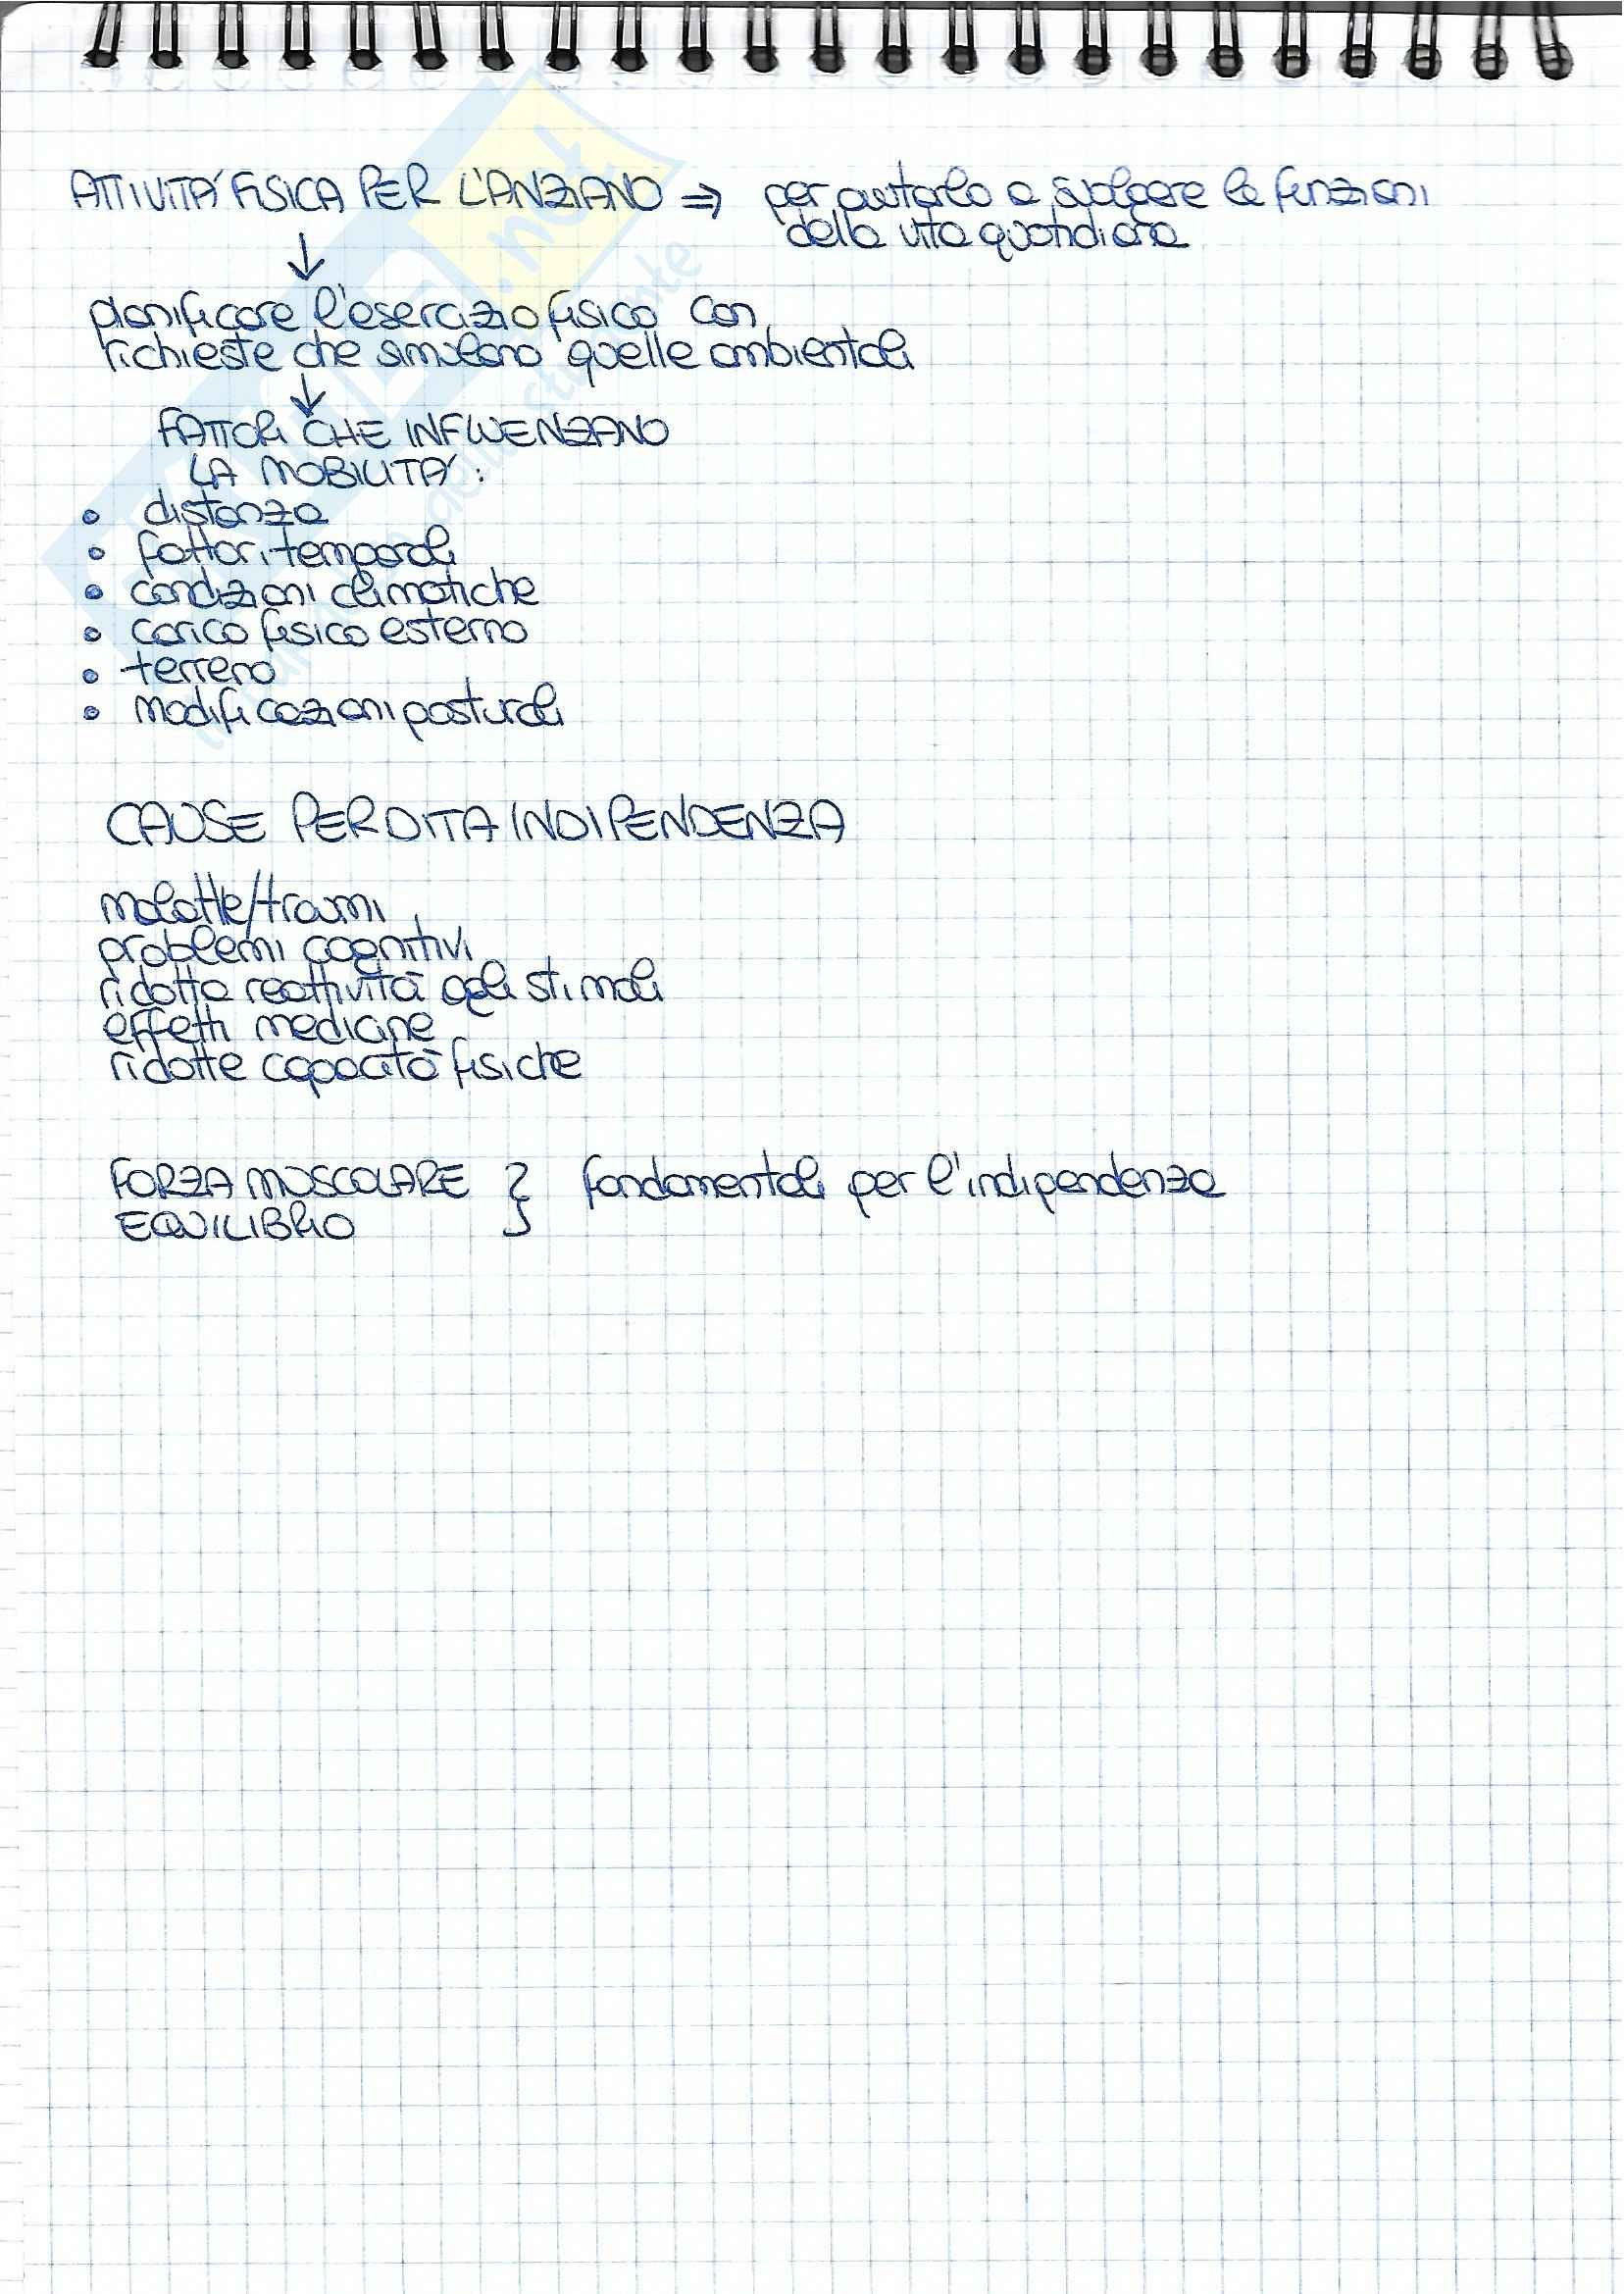 ATTIVITA' FISICA PER L'ANZIANO ⇒ per aiutarlo a svolgere le funzioni
della vita quotidiana
↓
pianificare l'esercizio fisico con
richieste che simulano quelle ambientali
↓
FATTORI CHE INFLUENZANO
LA MOBILITA':
• distanza
• fattori temporali
• condizioni climatiche
• carico fisico esterno
• terreno
• modificazioni posturali
CAUSE PERDITA INDIPENDENZA
malattie/traumi
problemi cognitivi
ridotta reattività agli stimoli
effetti medicine
ridotte capacità fisiche
FORZA MUSCOLARE } fondamentali per l'indipendenza
EQUILIBRIO